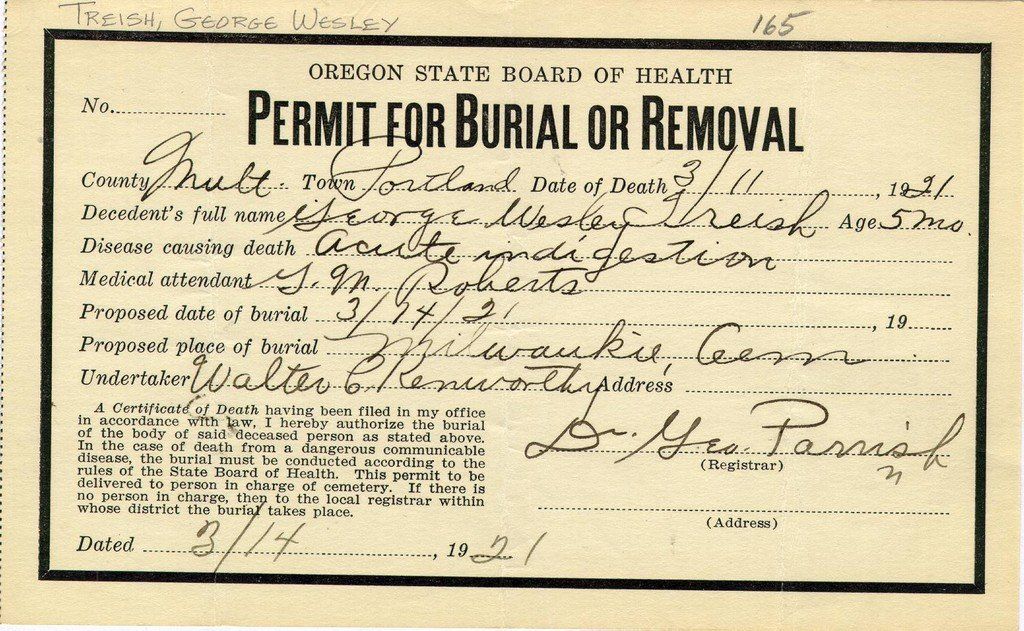 TREISH, GEORGE WESLEY 165
OREGON STATE BOARD OF HEALTH
No.
PERMIT FOR BURIAL OR REMOVAL
County Mult. Town Portland Date of Death 3/11, 1921
Decedent's full name George Wesley Treish Age 5 mo.
Disease causing death acute indigestion
Medical attendant G. M. Roberts
Proposed date of burial 3/14/21, 19
Proposed place of burial Milwaukie, Cem
Undertaker Walter C Kenworthy Address
A Certificate of Death having been filed in my office
in accordance with law, I hereby authorize the burial
of the body of said deceased person as stated above.
In the case of death from a dangerous communicable
disease, the burial must be conducted according to the
rules of the State Board of Health. This permit to be
delivered to person in charge of cemetery. If there is
no person in charge, then to the local registrar within
whose district the burial takes place.
Dr. Geo. Parrish
(Registrar)
(Address)
Dated 3/14, 1921